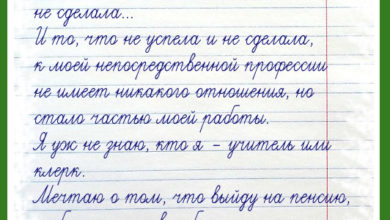 не сделала...
И то, что не успела и не сделала,
к моей непосредственной профессии
не имеет никакого отношения, но
стало частью моей работы.
Я уж не знаю, кто я – учитель или
клерк.
Мечтаю о том, что выйду на пенсию,